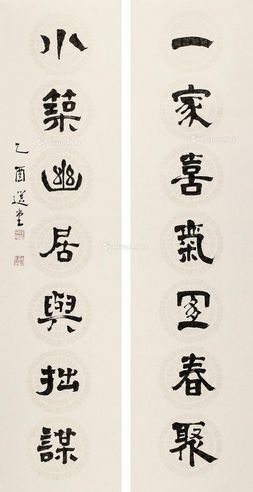 一家喜氣宜春聚
小築幽居與拙謀
乙酉選堂